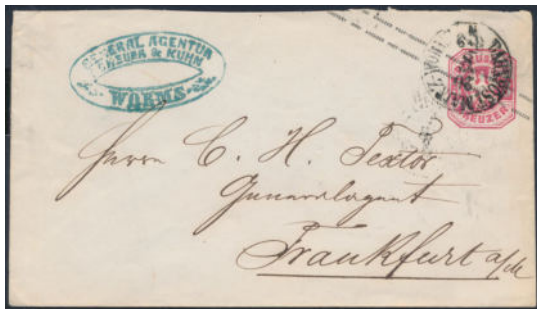 GENERAL AGENTUR
& KUHN
WORMS
BAHNPOST
KREUZER
Herrn C. H. Textor
Generalagent
Frankfurt a/M